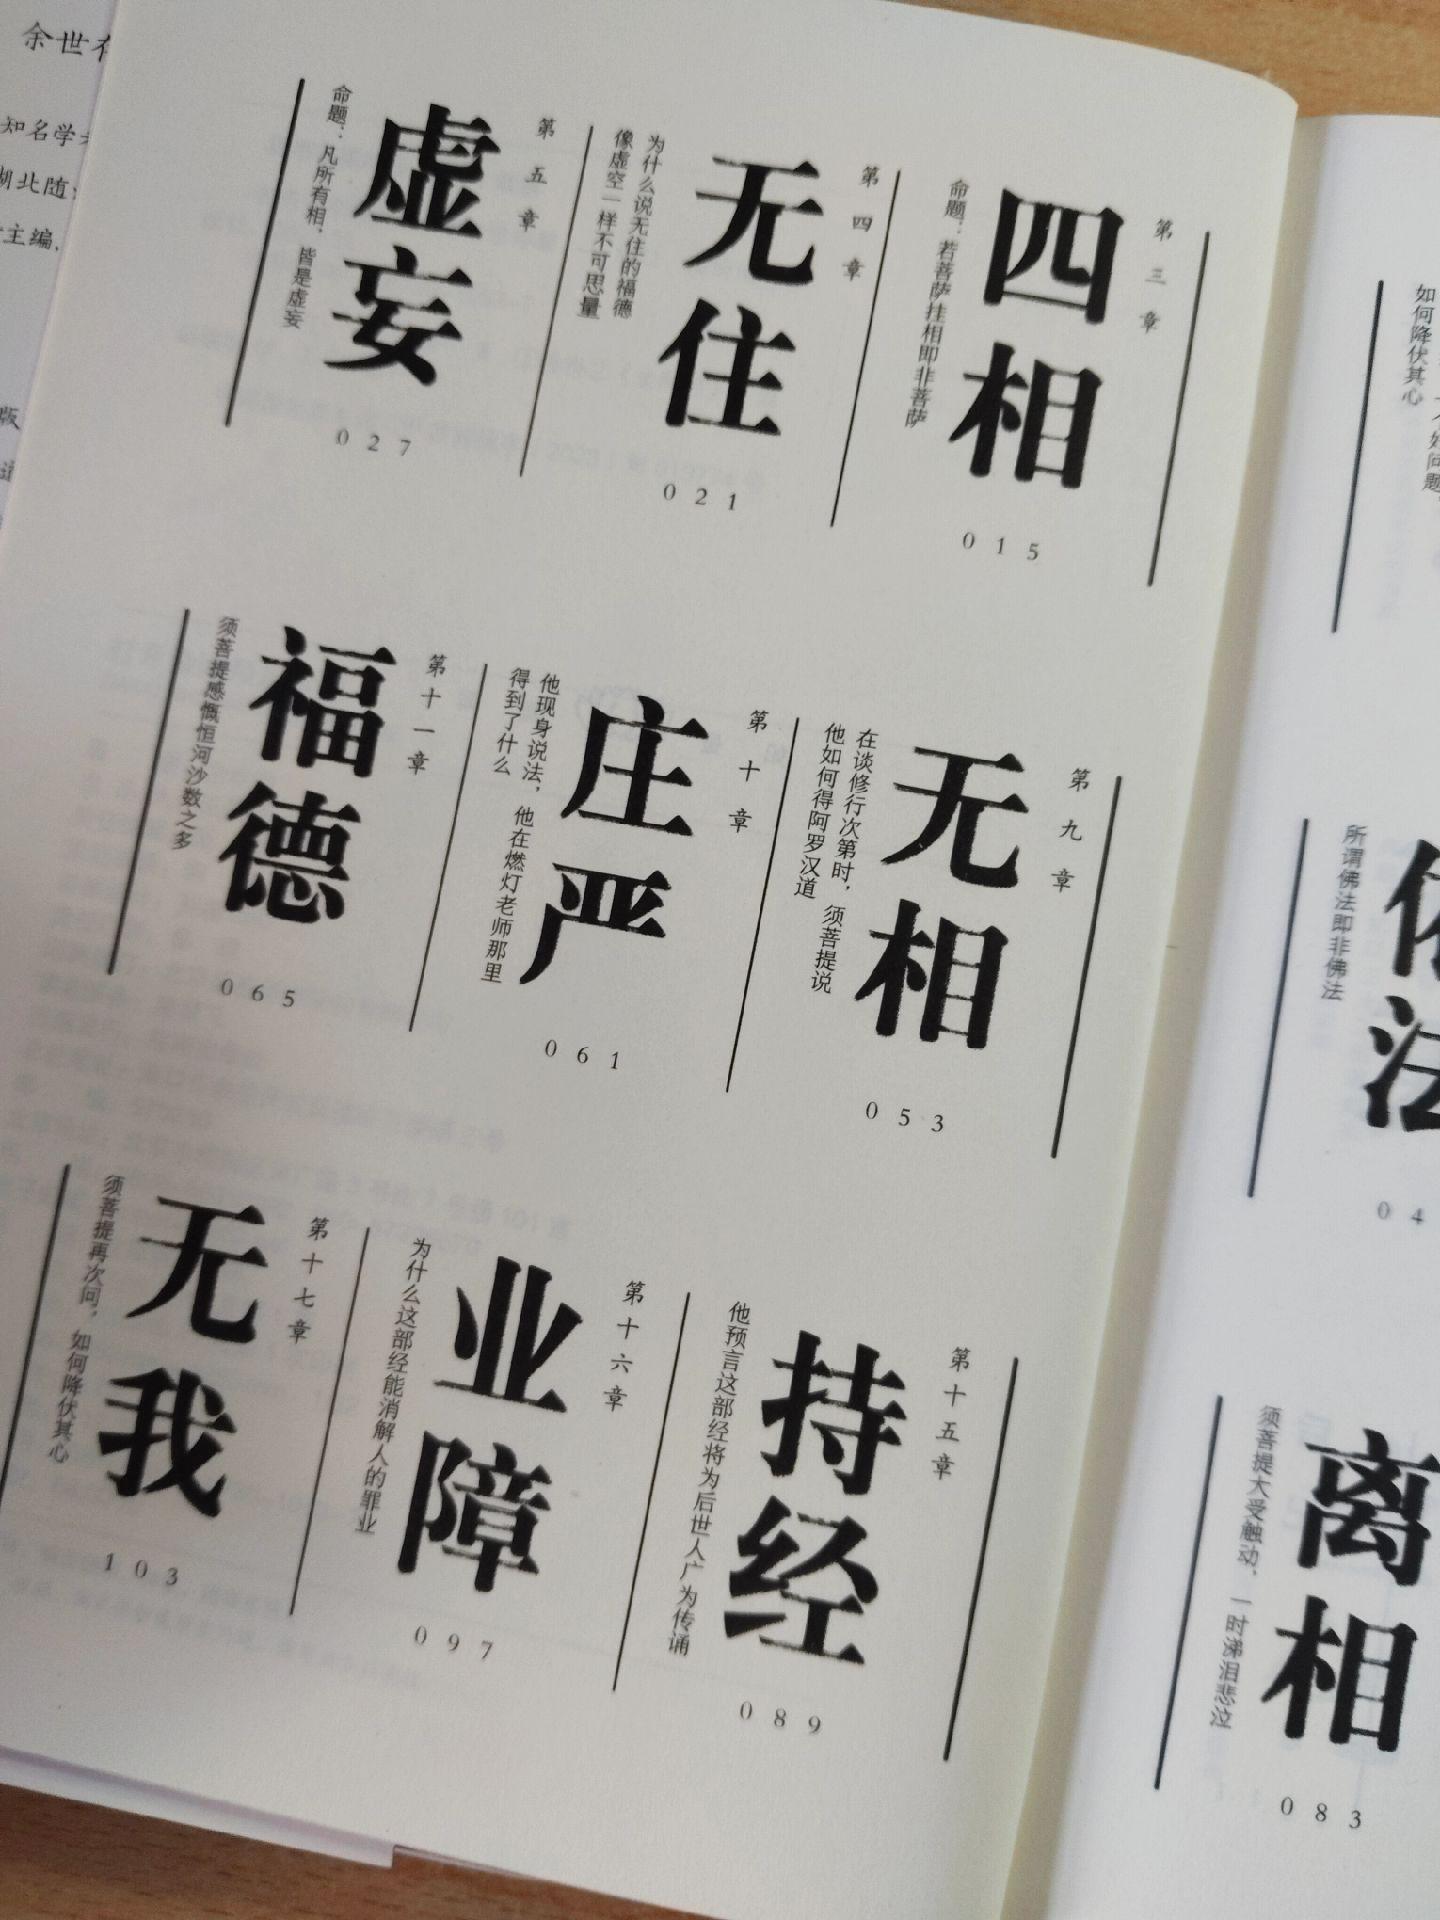 如何降伏其心
第三章
四相
命题：若菩萨挂相即非菩萨
015
第四章
无住
为什么说无住的福德
像虚空一样不可思量
021
第五章
虚妄
命题：凡所有相，皆是虚妄
027
法
所谓佛法即非佛法
04
第九章
无相
在谈修行次第时，须菩提说
他如何得阿罗汉道
053
第十章
庄严
他现身说法，他在燃灯老师那里
得到了什么
061
第十一章
福德
须菩提感慨恒河沙数之多
065
离相
须菩提大受触动，一时涕泪悲泣
083
第十五章
持经
他预言这部经将为后世人广为传诵
089
第十六章
业障
为什么这部经能消解人的罪业
097
第十七章
无我
须菩提再次问，如何降伏其心
103
余世
知名学
湖北随
主编，
版